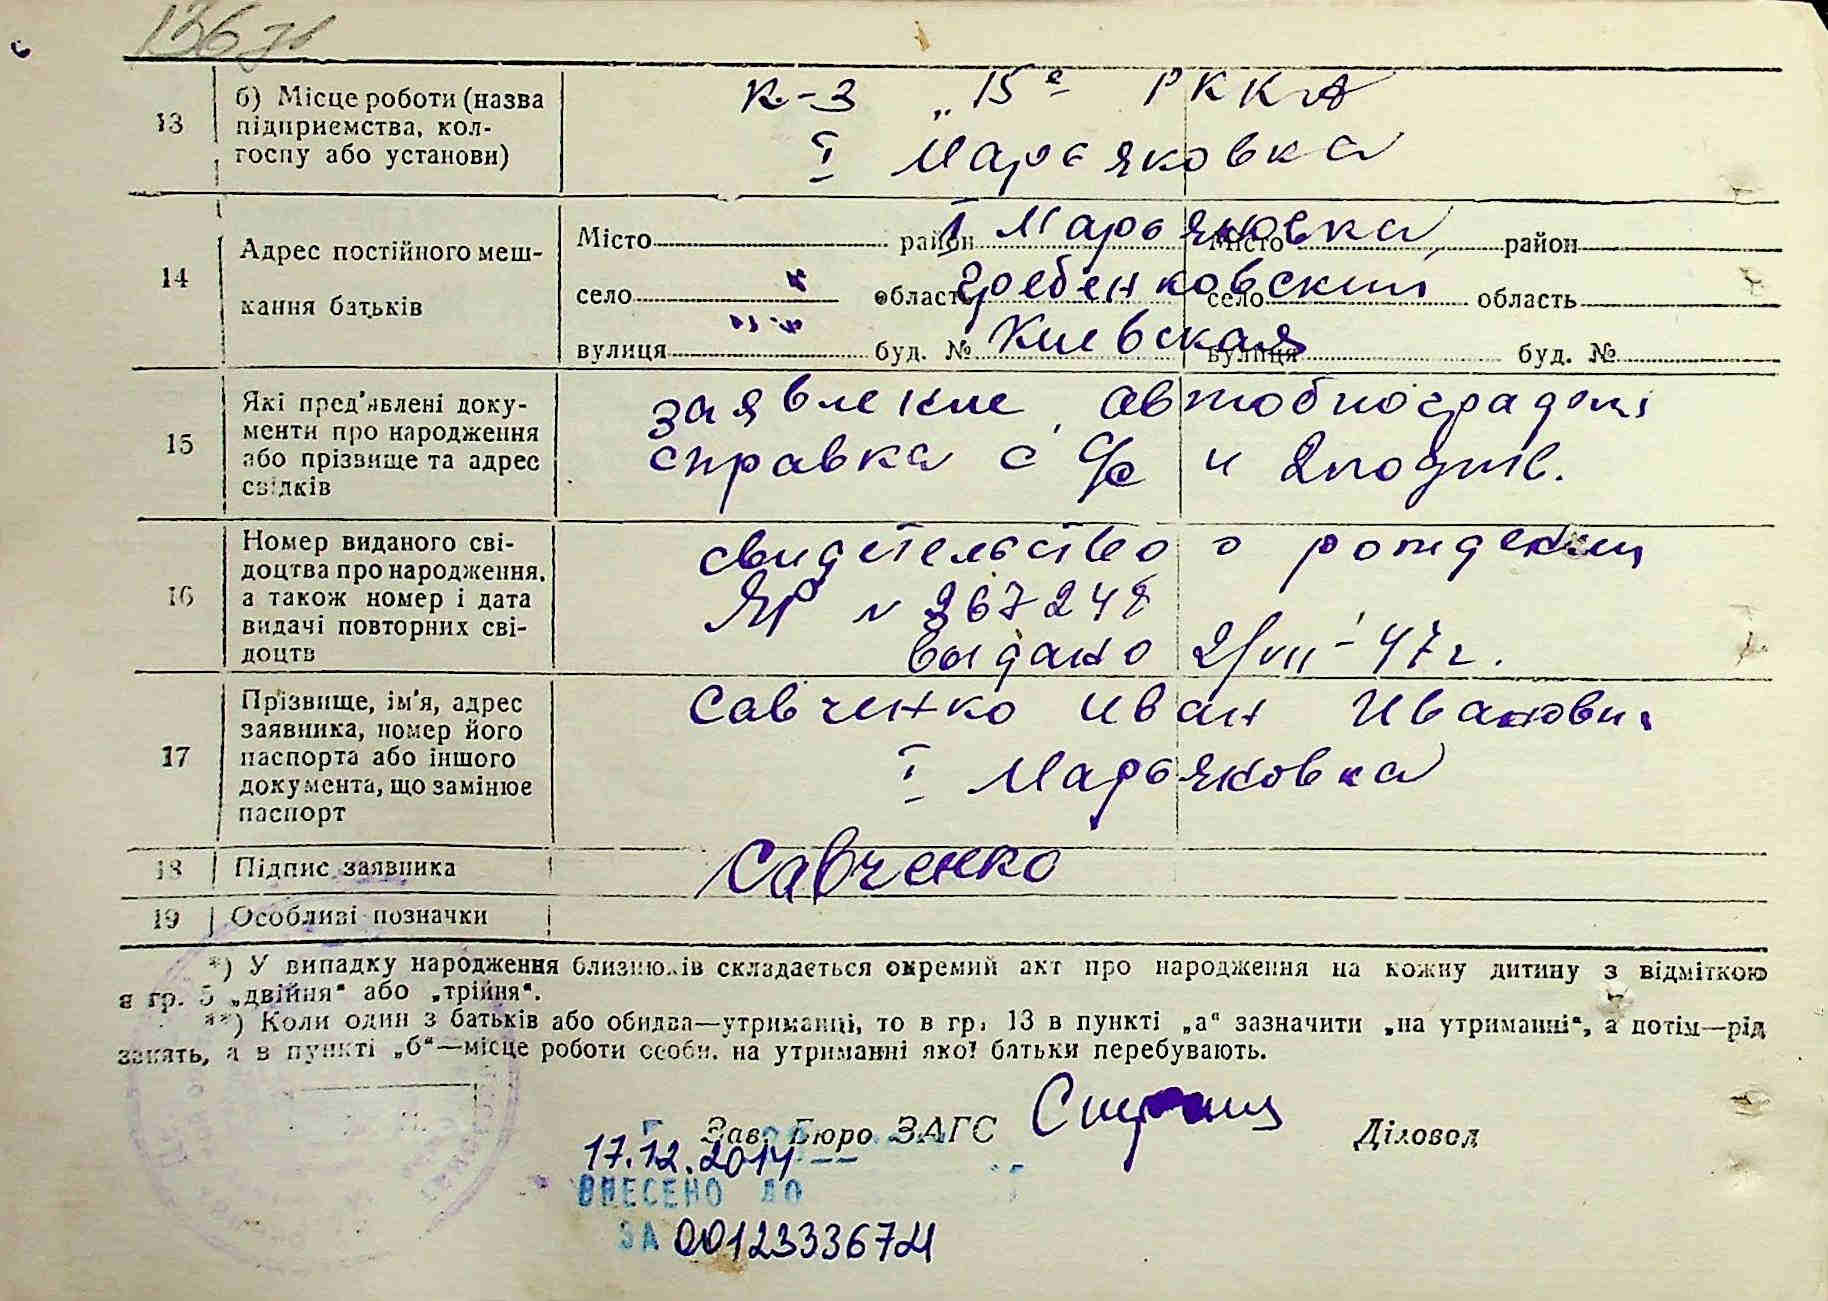 136
13
б) Місце роботи (назва
підприємства, кол-
госпу або установи)
к-з „15 РККА
І Марьяновка
14
Адрес постійного меш-
кання батьків
Місто район Місто район
І Марьяновка
село область село область
Гребенковский
вулиця буд. № вулиця буд. №
Киевская
15
Які пред'явлені доку-
менти про народження
або прізвище та адрес
свідків
заявление, автобиография
справка с и 2
16
Номер виданого сві-
доцтва про народження,
а також номер і дата
видачі повторних сві-
доцтв
свидетельство о рождении
ЯР № 267248
выдано 2/VII-47г.
17
Прізвище, ім'я, адрес
заявника, номер його
паспорта або іншого
документа, що замінює
паспорт
Савченко Иван Иванович
І Марьяновка
18
Підпис заявника
Савченко
19
Особливі позначки
*) У випадку народження близнюків складається окремий акт про народження на кожну дитину з відміткою
в гр. 5 „двійня“ або „трійня“.
**) Коли один з батьків або обидва—утриманці, то в гр. 13 в пункті „а“ зазначити „на утриманні“, а потім—рід
занять, а в пункті „б“—місце роботи особи, на утриманні якої батьки перебувають.
Зав. Бюро ЗАГС
Діловод
17.12.2014
ВНЕСЕНО ДО
ЗА 00123336724